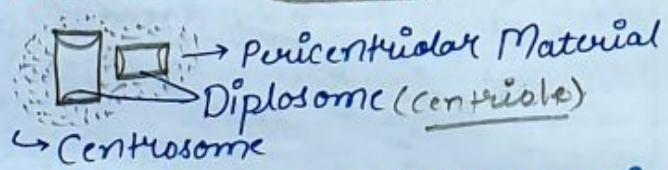 → Pericentriolar Material
Diplosome (Centriole)
↳ Centrosome